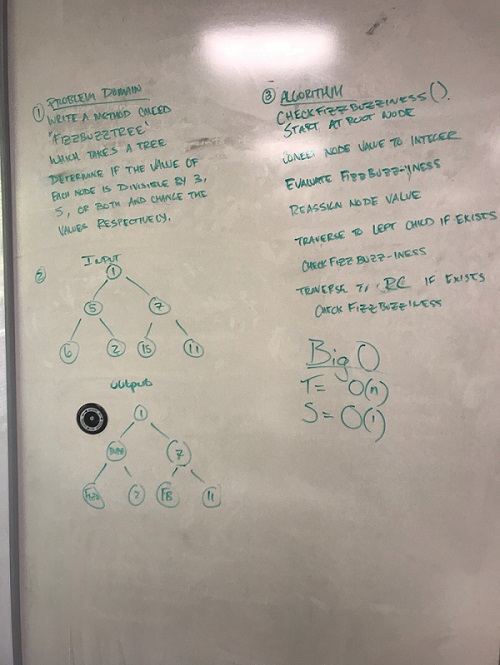 ① PROBLEM DOMAIN
WRITE A METHOD CALLED
'FIZZBUZZTREE'
WHICH TAKES A TREE
DETERMINE IF THE VALUE OF
EACH NODE IS DIVISIBLE BY 3,
5, OR BOTH AND CHANGE THE
VALUES RESPECTIVELY.
② INPUT
1
5 7
6 2 15 11
OUTPUT
1
7
2 FB 11
③ ALGORITHM
CHECKFIZZBUZZINESS().
START AT ROOT NODE
NODE VALUE TO INTEGER
EVALUATE FIZZBUZZ-YNESS
REASSIGN NODE VALUE
TRAVERSE TO LEFT CHILD IF EXISTS
CHECK FIZZBUZZ-INESS
TRAVERSE TO RC IF EXISTS
CHECK FIZZBUZZINESS
Big O
T= O(n)
S= O(1)